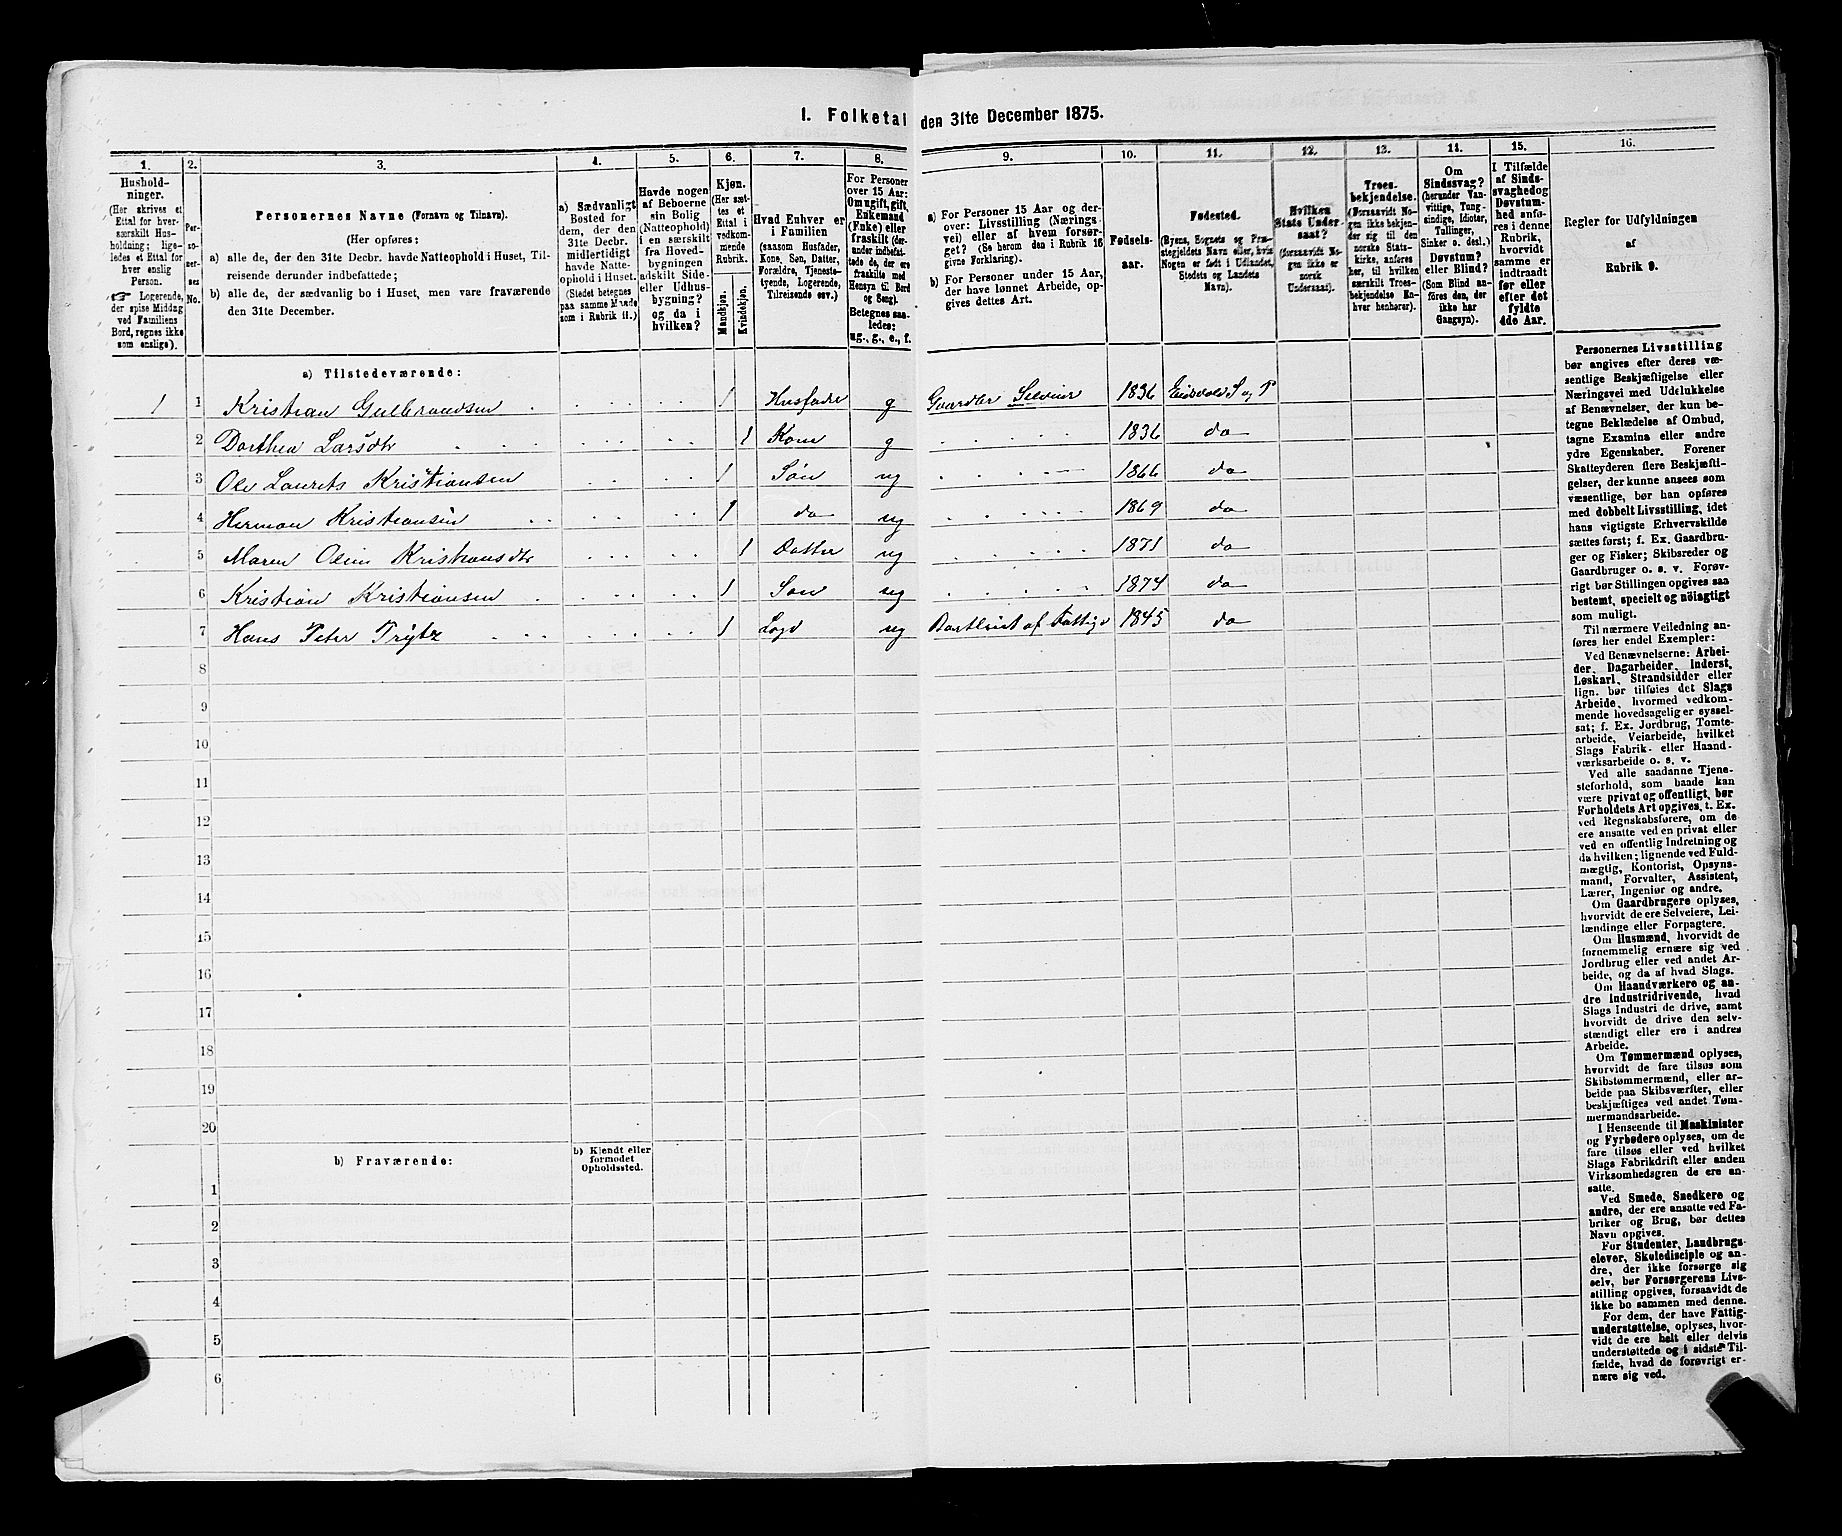 1. Folketal den 31te December 1875.
1. 2. 3. 4. 5. 6. 7. 8. 9. 10. 11. 12. 13. 14. 15. 16.
Hushold-
ninger.
(Her skrives et
Ettal for hver-
særskilt Hus-
holdning; lige-
ledes et Ettal for
hver enslig
Person.
☞ Logerende,
der spise Middag
ved Familiens
Bord, regnes ikke
som enslige).
Per-
so-
ner-
nes
No.
Personernes Navne (Fornavn og Tilnavn).
(Her opføres:
a) alle de, der den 31te Decbr. havde Natteophold i Huset, Til-
reisende derunder indbefattede;
b) alle de, der sædvanlig bo i Huset, men vare fraværende
den 31te December.
a) Sædvanligt
Bosted for
dem, der den
31te Decbr.
midlertidigt
havde Natte-
ophold i Huset.
(Stedet betegnes
paa samme Maade
som i Rubrik 11.)
Havde nogen
af Beboerne
sin Bolig
(Natteophold)
i en særskilt
fra Hoved-
bygningen
adskilt Side-
eller Udhus-
bygning?
og da i
hvilken?
Kjøn.
(Her sæt-
tes et
Ettal i
vedkom-
mende
Rubrik.
Mandkjøn.
Kvindekjøn.
Hvad Enhver er
i Familien
(saasom Husfader,
Kone, Søn, Datter,
Forældre, Tjeneste-
tyende, Logerende,
Tilreisende osv.)
For Personer
over 15 Aar:
Om ugift, gift,
Enkemand
(Enke) eller
fraskilt (der-
under indbefat-
tede de, der ere
fraskilte med
Hensyn til Bord
og Seng).
Betegnes saa-
ledes:
ug., g., e., f.
a) For Personer 15 Aar og der-
over: Livsstilling (Nærings-
vei) eller af hvem forsør-
get? (Se herom den i Rubrik 16
givne Forklaring).
b) For Personer under 15 Aar,
der have lønnet Arbeide, op-
gives dettes Art.
Fødsels-
aar.
Fødested.
(Byens, Sognets og Præ-
stegjeldets Navn eller, hvis
Nogen er født i Udlandet,
Stedets og Landets
Navn).
Hvilken
Stats Under-
saat?
(forsaavidt No-
gen ikke er
norsk
Undersaat).
Troes-
bekjendelse.
(Forsaavidt No-
gen ikke bekjen-
der sig til den
norske Stats-
kirke, anføres
her, til hvilken
særskilt Troes-
bekjendelse En-
hver henhører).
Om
Sindssvag?
(herunder Van-
vittige, Tung-
sindige, Idioter,
Tullinger,
Sinker o. desl.)
Døvstum?
eller Blind?
(Som Blind an-
føres den, der
ikke har
Gangsyn).
I Tilfælde
af Sinds-
svaghed og
Døvstum-
hed anfø-
res i denne
Rubrik,
hvorvidt
samme er
indtraadt
før eller
efter det
fyldte
4de Aar.
Regler for Udfyldningen
af
Rubrik 9.
a) Tilstedeværende:
1 1 Kristian Gulbrandsen 1 Husfader g Gaardbr Selveier 1836 Eidsvold S og P
2 Dorthea Larsdtr 1 Kone g 1836 do
3 Ole Laurits Kristiansen 1 Søn ug 1866 do
4 Herman Kristiansen 1 do ug 1869 do
5 Maren Oline Kristiansdtr 1 Datter ug 1871 do
6 Kristian Kristiansen 1 Søn ug 1874 do
7 Hans Peter Trytz 1 Logd ug af Fattigv 1845 do
8
9
10
11
12
13
14
15
16
17
18
19
20
b) Fraværende:
b) Kjendt eller
formodet
Opholdssted.
1
2
3
4
5
6
Personernes Livsstilling
bør angives efter deres væ-
sentlige Beskjæftigelse eller
Næringsvei med Udelukkelse
af Benævnelser, der kun be-
tegne Beklædelse af Ombud,
tagne Examina eller andre
ydre Egenskaber. Forener
Skatteyderen flere Beskjæfti-
gelser, der kunne ansees som
væsentlige, bør han opføres
med dobbelt Livsstilling, idet
hans vigtigste Erhvervskilde
sættes først; f. Ex. Gaardbru-
ger og Fisker; Skibsreder og
Gaardbruger o. s. v. Forøv-
rigt bør Stillingen opgives saa
bestemt, specielt og nøiagtigt
som muligt.
Til nærmere Veiledning an-
føres her endel Exempler:
Ved Benævnelserne: Arbei-
der, Dagarbeider, Inderst,
Løskarl, Strandsidder eller
lign. bør tilføies det Slags
Arbeide, hvormed vedkom-
mende hovedsagelig er syssel-
sat; f. Ex. Jordbrug, Tomte-
arbeide, Veiarbeide, hvilket
Slags Fabrik- eller Haand-
værksarbeide o. s. v.
Ved alle saadanne Tjene-
steforhold, som baade kan
være privat og offentligt, bør
Forholdets Art opgives, t. Ex.
ved Regnskabsførere, om de
ere ansatte ved en privat eller
ved en offentlig Indretning og
da hvilken; lignende ved Fuld-
mægtig, Kontorist, Opsyns-
mand, Forvalter, Assistent,
Lærer, Ingeniør og andre.
Om Gaardbrugere oplyses,
hvorvidt de ere Selveiere, Lei-
lændinge eller Forpagtere.
Om Husmænd, hvorvidt de
fornemmelig ernære sig ved
Jordbrug eller ved andet Ar-
beide, og da af hvad Slags.
Om Haandværkere og an-
dre Industridrivende, hvad
Slags Industri de drive, samt
hvorvidt de drive den selv-
stændigt eller ere i andres
Arbeide.
Om Tømmermænd oplyses,
hvorvidt de fare tilsøs som
Skibstømmermænd, eller ar-
beide paa Skibsværfter, eller
beskjæftiges ved andet Tøm-
mermandsarbeide.
I Henseende til Maskinister
og Fyrbødere oplyses, om de
fare tilsøs eller ved hvilket
Slags Fabrikdrift eller anden
Virksomhedsgren de ere an-
satte.
Ved Smede, Snedkere og
andre, der ere ansatte ved Fa-
briker og Brug, bør dettes
Navn opgives.
For Studenter, Landbrugs-
elever, Skoledisciple og an-
dre, der ikke forsørge sig
selv, bør Forsørgerens Livs-
stilling opgives, forsaavidt de
ikke bo sammen med denne.
For dem, der have Fattig-
understøttelse, oplyses, hvor-
vidt de ere helt eller delvis
understøttede og i sidste Til-
fælde, hvad de forøvrigt er-
nære sig ved.